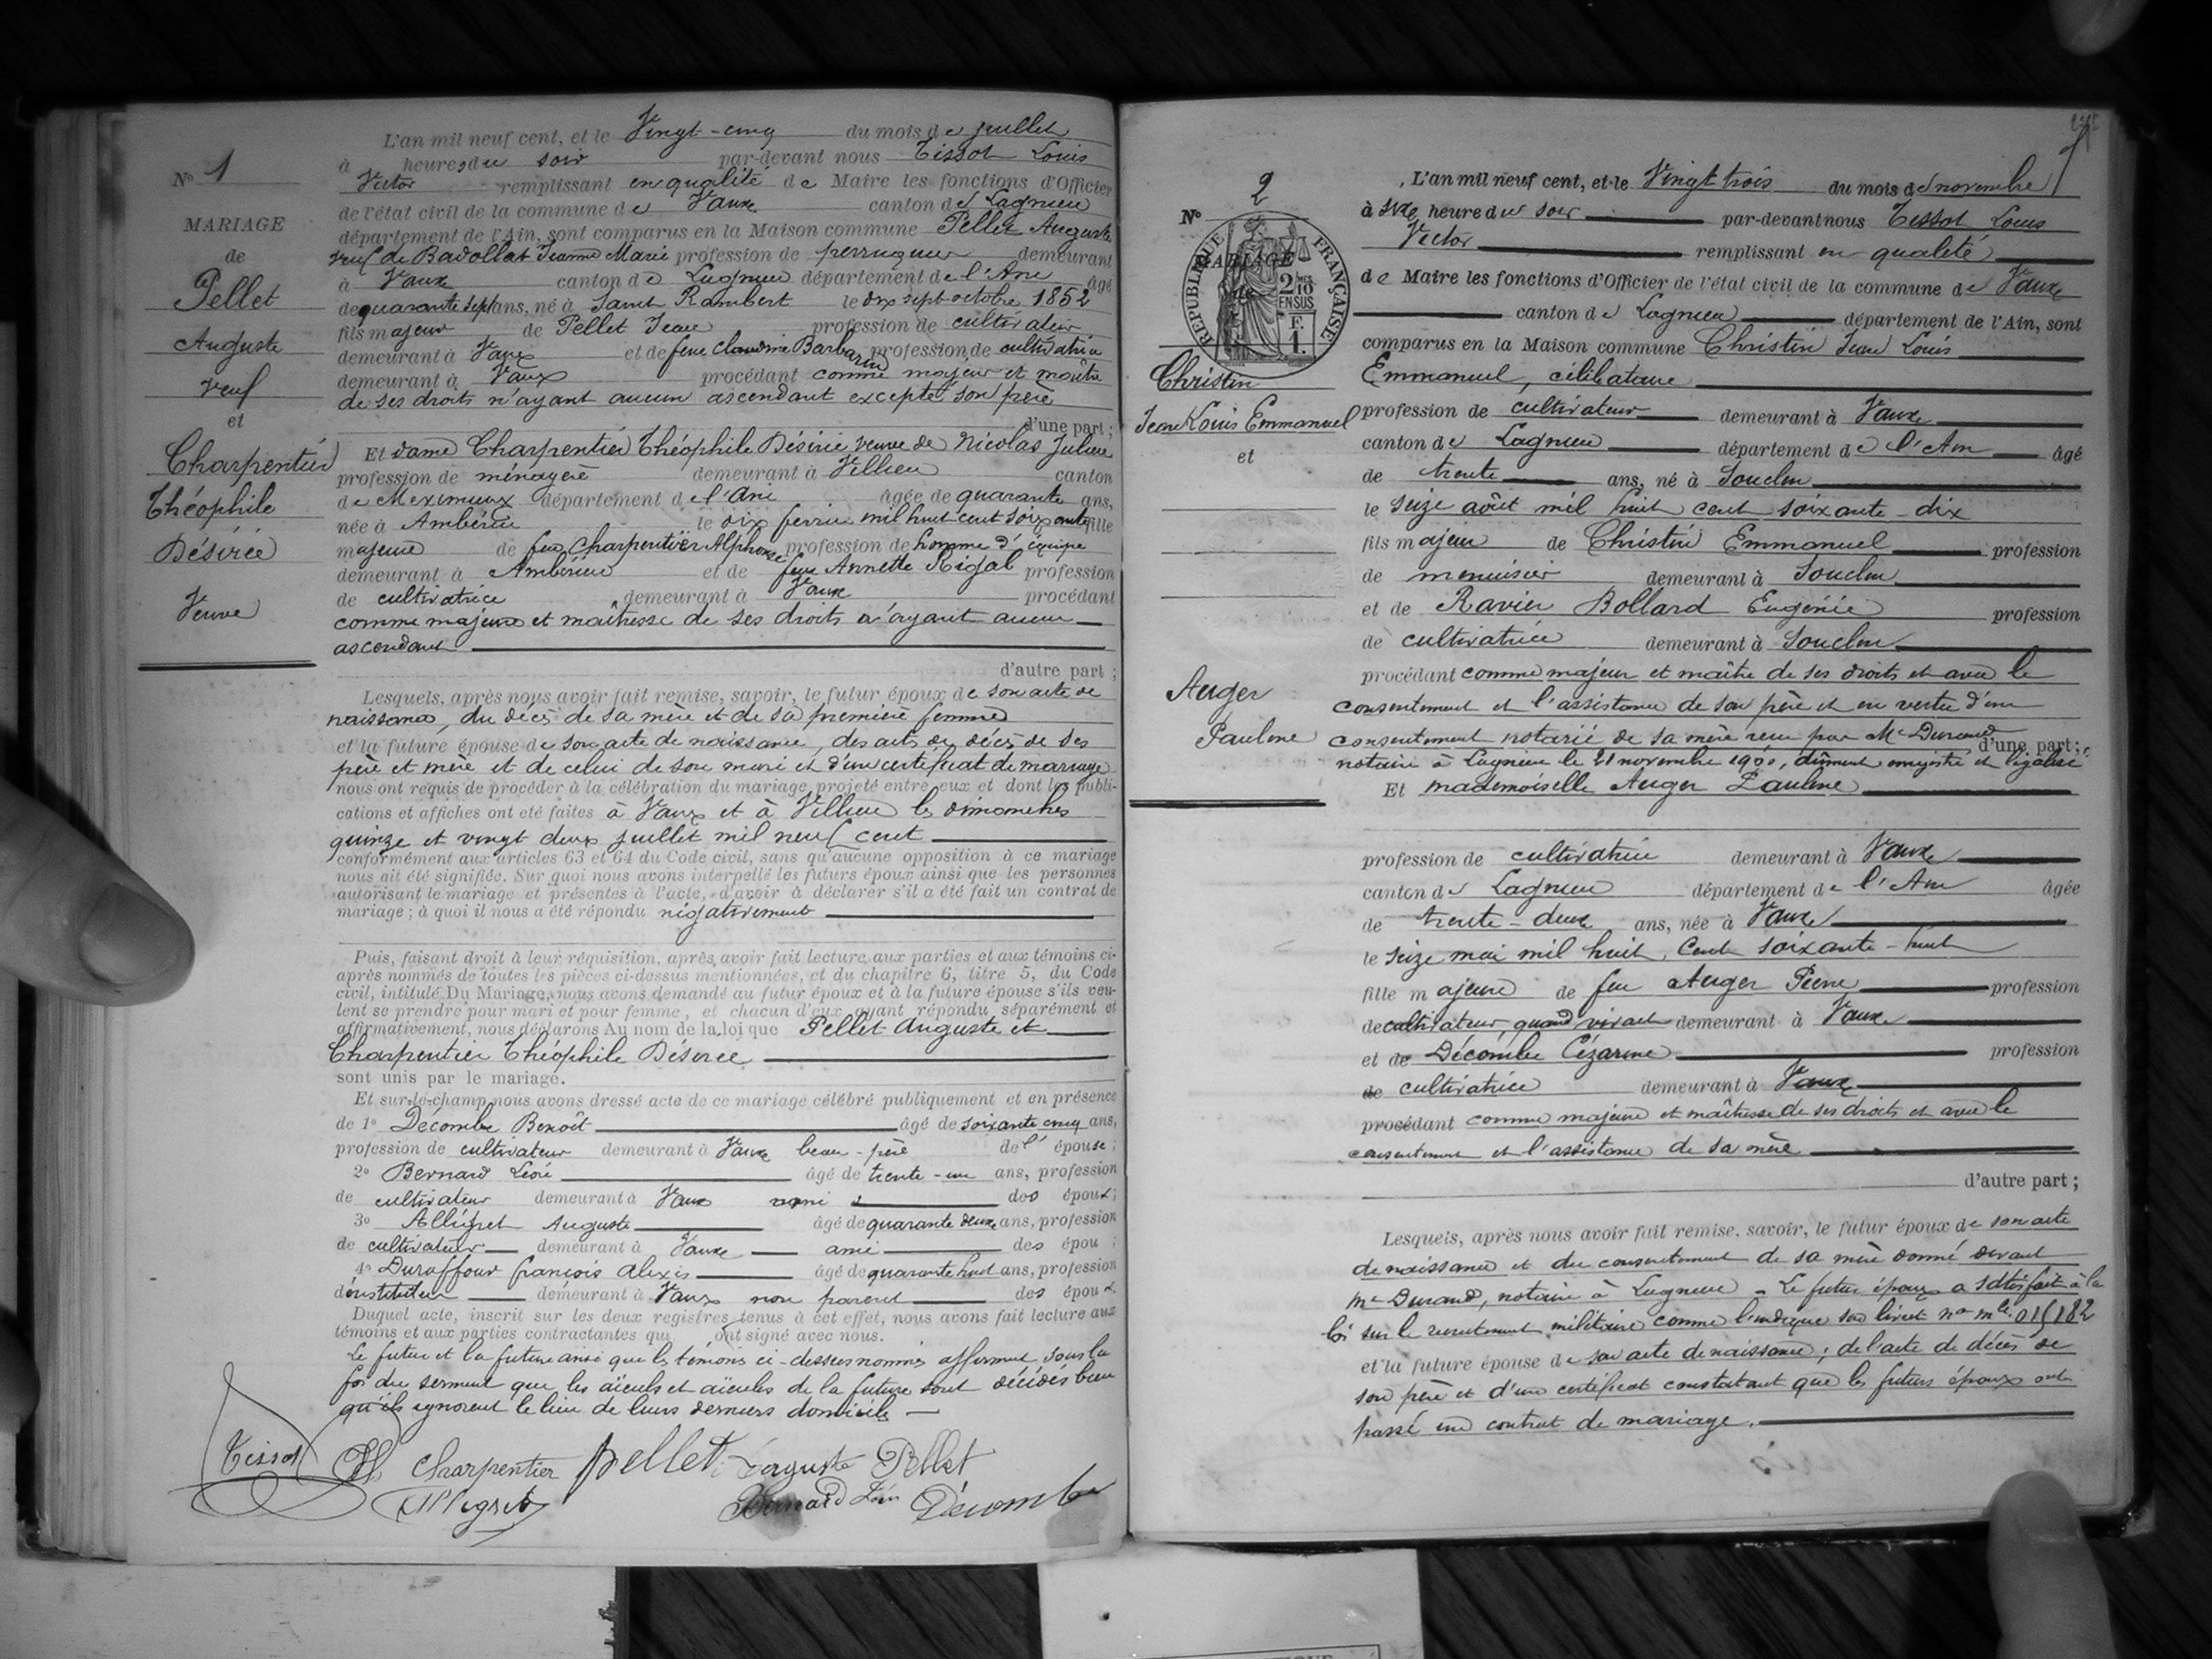 L'an mil neuf cent, et le Vingt-cinq du mois de juillet
à heures du soir par-devant nous Tissot Louis
Victor remplissant en qualité de Maire les fonctions d'Officier
de l'état civil de la commune de Vaux canton de Lagnieu
département de l'Ain, sont comparus en la Maison commune Pellet Auguste
veuf de Badollat Jeanne Marie profession de perruquier demeurant
à Vaux canton de Lagnieu département de l'Ain âgé
de quarante sept ans, né à Saint Rambert le dix sept octobre 1852
fils majeur de Pellet Jean profession de cultivateur
demeurant à Vaux et de feue Claudine Barbarin profession de cultivatrice
demeurant à Vaux procédant comme majeur et maître
de ses droits n'ayant aucun ascendant excepté son père
d'une part ;
Et dame Charpentier Théophile Désirée veuve de Nicolas Julien
profession de ménagère demeurant à Villieu canton
de Meximieux département de l'Ain âgée de quarante ans,
née à Ambérieu le dix février mil huit cent soixante fille
majeure de feu Charpentier Alphonse profession de homme d'équipe
demeurant à Ambérieu et de feue Annette Rigal profession
de cultivatrice demeurant à Vaux procédant
comme majeure et maîtresse de ses droits n'ayant aucun
ascendant
d'autre part ;
Lesquels, après nous avoir fait remise, savoir, le futur époux de son acte de
naissance, du décès de sa mère et de sa première femme
et la future épouse de son acte de naissance, des acts de décès de ses
père et mère et de celui de son mari et d'un certificat de mariage
nous ont requis de procéder à la célébration du mariage projeté entre eux et dont les publi-
cations et affiches ont été faites à Vaux et à Villieu les dimanches
quinze et vingt deux juillet mil neuf cent
conformément aux articles 63 et 64 du Code civil, sans qu'aucune opposition à ce mariage
nous ait été signifiée. Sur quoi nous avons interpellé les futurs époux ainsi que les personnes
autorisant le mariage et présentes à l'acte, d'avoir à déclarer s'il a été fait un contrat de
mariage ; à quoi il nous a été répondu négativement
Puis, faisant droit à leur réquisition, après avoir fait lecture aux parties et aux témoins ci-
après nommés de toutes les pièces ci-dessus mentionnées, et du chapitre 6, titre 5, du Code
civil, intitulé Du Mariage, nous avons demandé au futur époux et à la future épouse s'ils veu-
lent se prendre pour mari et pour femme, et chacun d'eux ayant répondu séparément et
affirmativement, nous déclarons Au nom de la loi que Pellet Auguste et
Charpentier Théophile Désirée
sont unis par le mariage.
Et sur-le-champ nous avons dressé acte de ce mariage célébré publiquement et en présence
de 1º Décombe Benoît âgé de soixante cinq ans,
profession de cultivateur demeurant à Vaux beau-père de l'épouse ;
2º Bernard Léon âgé de trente-un ans, profession
de cultivateur demeurant à Vaux ami des époux ;
3º Allégret Auguste âgé de quarante deux ans, profession
de cultivateur demeurant à Vaux ami des épou ;
4º Duraffour françois Alexis âgé de quarante huit ans, profession
d'instituteur demeurant à Vaux non parent des époux.
Duquel acte, inscrit sur les deux registres tenus à cet effet, nous avons fait lecture aux
témoins et aux parties contractantes qui ont signé avec nous.
Le futur et la future ainsi que les témoins ci-dessus nommés affirment sous la
foi du serment que les aïeuls et aïeules de la future sont décédés bien
qu'ils ignorent le lieu de leurs derniers domicile
Tissot Charpentier Pellet Auguste Pellet
Allegret Bernard Léon Décombe
Nº 1
MARIAGE
de
Pellet
Auguste
Veuf
et
Charpentier
Théophile
Désirée
Veuve
L'an mil neuf cent, et le Vingt trois du mois de novembre
à six heure du soir par-devant nous Tissot Louis
Victor remplissant en qualité
de Maire les fonctions d'Officier de l'état civil de la commune de Vaux
canton de Lagnieu département de l'Ain, sont
comparus en la Maison commune Christin Jean Louis
Emmanuel, célibataire
profession de cultivateur demeurant à Vaux
canton de Lagnieu département de l'Ain âgé
de trente ans, né à Souclin
le seize août mil huit cent soixante-dix
fils majeur de Christin Emmanuel profession
de menuisier demeurant à Souclin
et de Ravier Bollard Eugénie profession
de cultivatrice demeurant à Souclin
procédant comme majeur et maître de ses droits et avec le
consentement et l'assistance de son père et en vertu d'un
consentement notarié de sa mère reçu par Me Durand
d'une part ;
notaire à Lagnieu le 21 novembre 1900, dûment enregistré et légalisé
Et mademoiselle Auger Pauline
profession de cultivatrice demeurant à Vaux
canton de Lagnieu département de l'Ain âgée
de trente-deux ans, née à Vaux
le seize mai mil huit cent soixante-huit
fille majeure de feu Auger Pierre profession
de cultivateur, quand vivait demeurant à Vaux
et de Décombe Cézarine profession
de cultivatrice demeurant à Vaux
procédant comme majeure et maîtresse de ses droits et avec le
consentement et l'assistance de sa mère
d'autre part ;
Lesquels, après nous avoir fait remise, savoir, le futur époux de son acte
de naissance et du consentement de sa mère donné devant
Me Durand, notaire à Lagnieu. Le futur époux a satisfait à la
loi sur le recrutement militaire comme l'indique son livret no mle 015182
et la future épouse de son acte de naissance ; de l'acte de décès de
son père et d'un certificat constatant que les futurs époux ont
passé un contrat de mariage.
Nº 2
MARIAGE
de
RÉPUBLIQUE FRANÇAISE
2/10 EN SUS
F. 1.
Christin
Jean Louis Emmanuel
et
Auger
Pauline